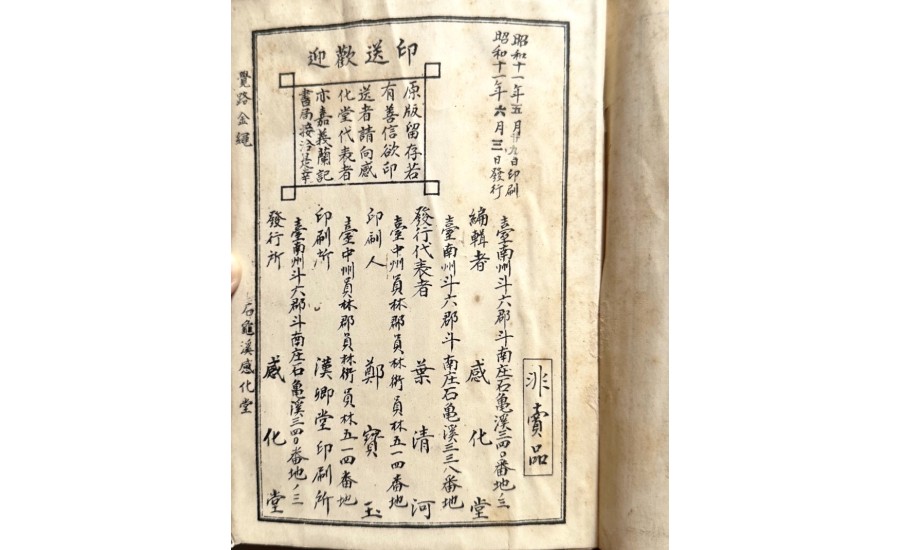 昭和十一年五月廿九日印刷
昭和十一年六月三日發行
非賣品
印送歡迎
原版留存若
有善信欲印
送者請向感
化堂代表者
亦嘉義蘭記
書局接洽是幸
臺南州斗六郡斗南庄石亀溪三四〇番地ノ三
編輯者 感化堂
臺南州斗六郡斗南庄石亀溪三三八番地
發行代表者 葉清河
臺中州員林郡員林街員林五一四番地
印刷人 鄭寶玉
臺中州員林郡員林街員林五一四番地
印刷所 漢卿堂印刷所
臺南州斗六郡斗南庄石亀溪三四〇番地ノ三
發行所 感化堂
覺路金繩
石龜溪感化堂